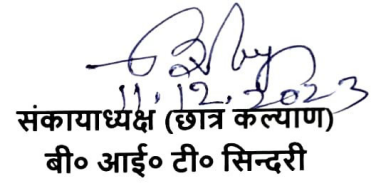 11.12.2023
संकायाध्यक्ष (छात्र कल्याण)
बी० आई० टी० सिन्दरी